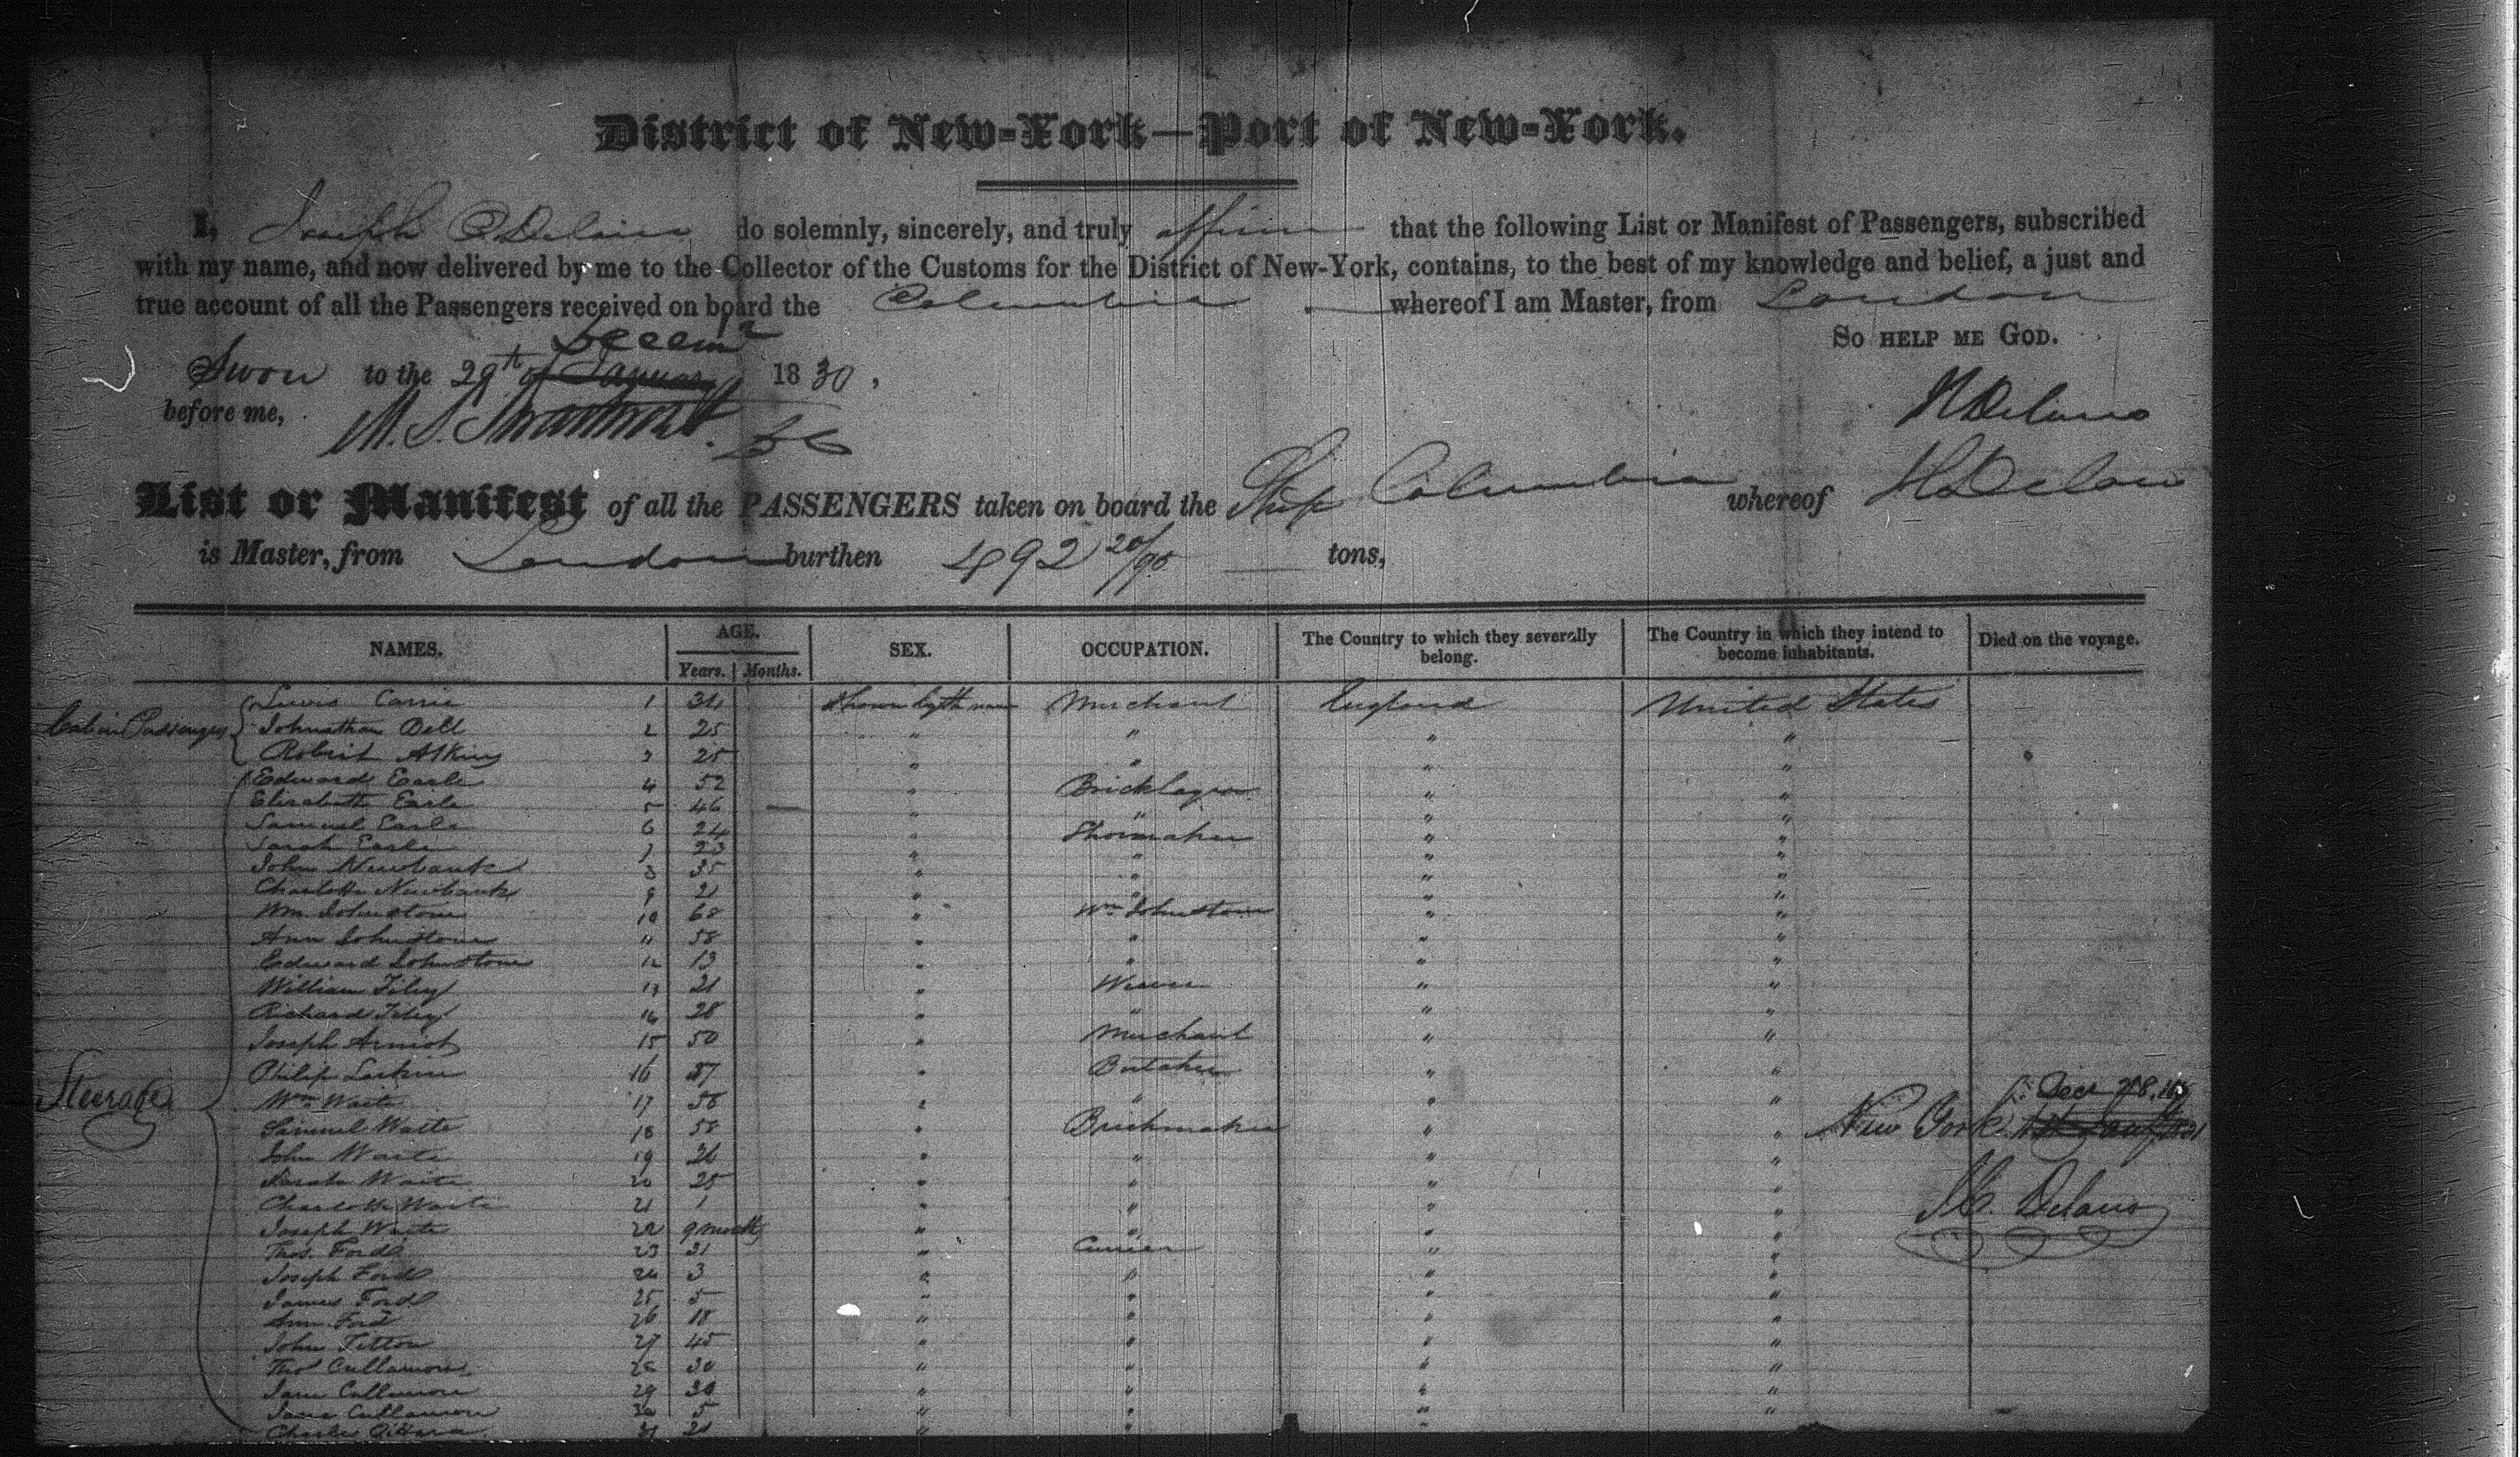 District of New-York—Port of New-York.
I, Joseph C Delano do solemnly, sincerely, and truly affirm that the following List or Manifest of Passengers, subscribed
with my name, and now delivered by me to the Collector of the Customs for the District of New-York, contains, to the best of my knowledge and belief, a just and
true account of all the Passengers received on board the Columbia whereof I am Master, from London
So help me God.
Decemr
Sworn to the 29th of January 1830,
before me, M. S.
JCDelano
List or Manifest of all the PASSENGERS taken on board the Ship Columbia whereof JCDelano
is Master, from London burthen 492 20/95 tons,
NAMES. AGE. Years. Months. SEX. OCCUPATION. The Country to which they severally belong. The Country in which they intend to become inhabitants. Died on the voyage.
Cabin Passengers
Lewis Currie 1 34 Shown by the names Merchant England United States
Johnathan Dell 2 25 " " " "
Robert Atkins 3 25 " " " "
Steerage
Edward Earle 4 52 " Bricklayer " "
Elizabeth Earle 5 46 " " " "
Samuel Earle 6 24 " Shoemaker " "
Sarah Earle 7 23 " " " "
John Newbank 8 35 " " " "
Charlotte Newbank 9 21 " " " "
Wm Johnstone 10 68 " Wm Johnstone " "
Ann Johnstone 11 58 " " " "
Edward Johnstone 12 13 " " " "
William Tiley 13 21 " Weaver " "
Richard Tiley 14 28 " " " "
Joseph 15 50 " Merchant " "
Philip Larkin 16 37 " Butcher " "
Wm Waite 17 58 " " " "
Samuel Waite 18 58 " Brickmaker " "
New York Decr 28,
John Waite 19 26 " " " "
Sarah Waite 20 25 " " " "
Charlotte Waite 21 1 " " " "
J.C. Delano
Joseph Waite 22 9 months " " " "
Thos. Ford 23 31 " Currier " "
Joseph Ford 24 3 " " " "
James Ford 25 5 " " " "
Ann Ford 26 18 " " " "
John Titton 27 45 " " " "
Thos Cullamore 28 30 " " " "
Jane Cullamore 29 30 " " " "
Jane Cullamore 30 5 " " " "
Charles O'Hara 31 21 " " " "